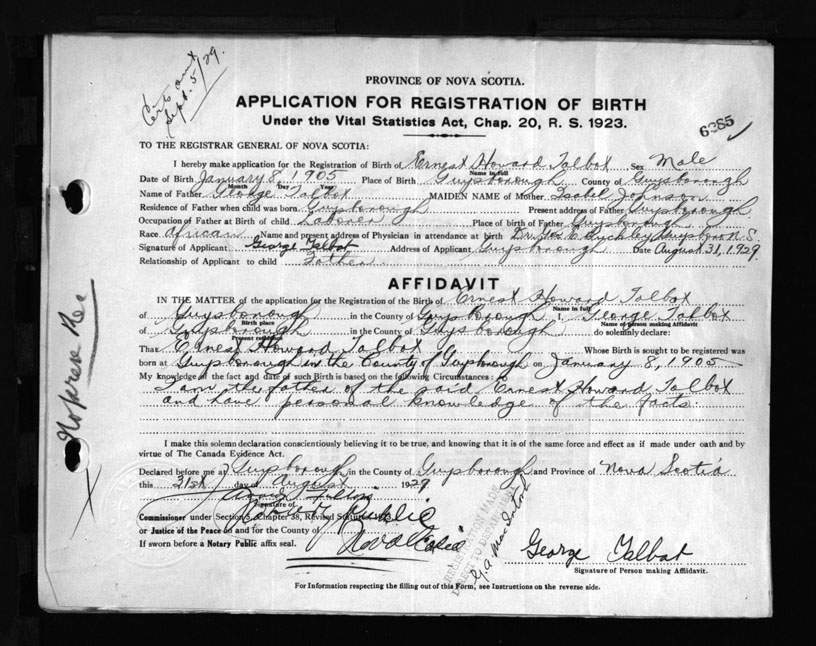 Sept. 5/29.
PROVINCE OF NOVA SCOTIA.
APPLICATION FOR REGISTRATION OF BIRTH
Under the Vital Statistics Act, Chap. 20, R. S. 1923.
6285
TO THE REGISTRAR GENERAL OF NOVA SCOTIA:
I hereby make application for the Registration of Birth of Ernest Howard Talbot Sex Male
Name in full
Date of Birth January 8, 1905 Place of Birth Guysborough County of Guysborough
Month Day Year
Name of Father George Talbot MAIDEN NAME of Mother Isabel Johnson
Residence of Father when child was born Guysborough Present address of Father Guysborough
Occupation of Father at Birth of child Laborer Place of birth of Father Guysborough
Race African Name and present address of Physician in attendance at birth Buckley Guysboro N.S.
Signature of Applicant George Talbot Address of Applicant Guysborough Date August 31, 1929.
Relationship of Applicant to child Father
AFFIDAVIT
IN THE MATTER of the application for the Registration of the Birth of Ernest Howard Talbot
Name in full
of Guysborough in the County of Guysborough I, George Talbot
Birth place Name of person making Affidavit
of Guysborough in the County of Guysborough do solemnly declare:
Present residence
That Ernest Howard Talbot Whose Birth is sought to be registered was
born at Guysborough in the County of Guysborough on January 8, 1905
My knowledge of the fact and date of such Birth is based on the following Circumstances: to
I am the father of the said Ernest Howard Talbot
and have personal knowledge of the facts
I make this solemn declaration conscientiously believing it to be true, and knowing that it is of the same force and effect as if made under oath and by
virtue of The Canada Evidence Act.
Declared before me at Guysborough in the County of Guysborough and Province of Nova Scotia
this 31st day of August 1929
Signature of
Notary Public
Commissioner under Section 3, Chapter 38, Revised Statutes
or Justice of the Peace in and for the County of
Nova Scotia
If sworn before a Notary Public affix seal.
George Talbot
Signature of Person making Affidavit.
For Information respecting the filling out of this Form, see Instructions on the reverse side.
No prev Rec